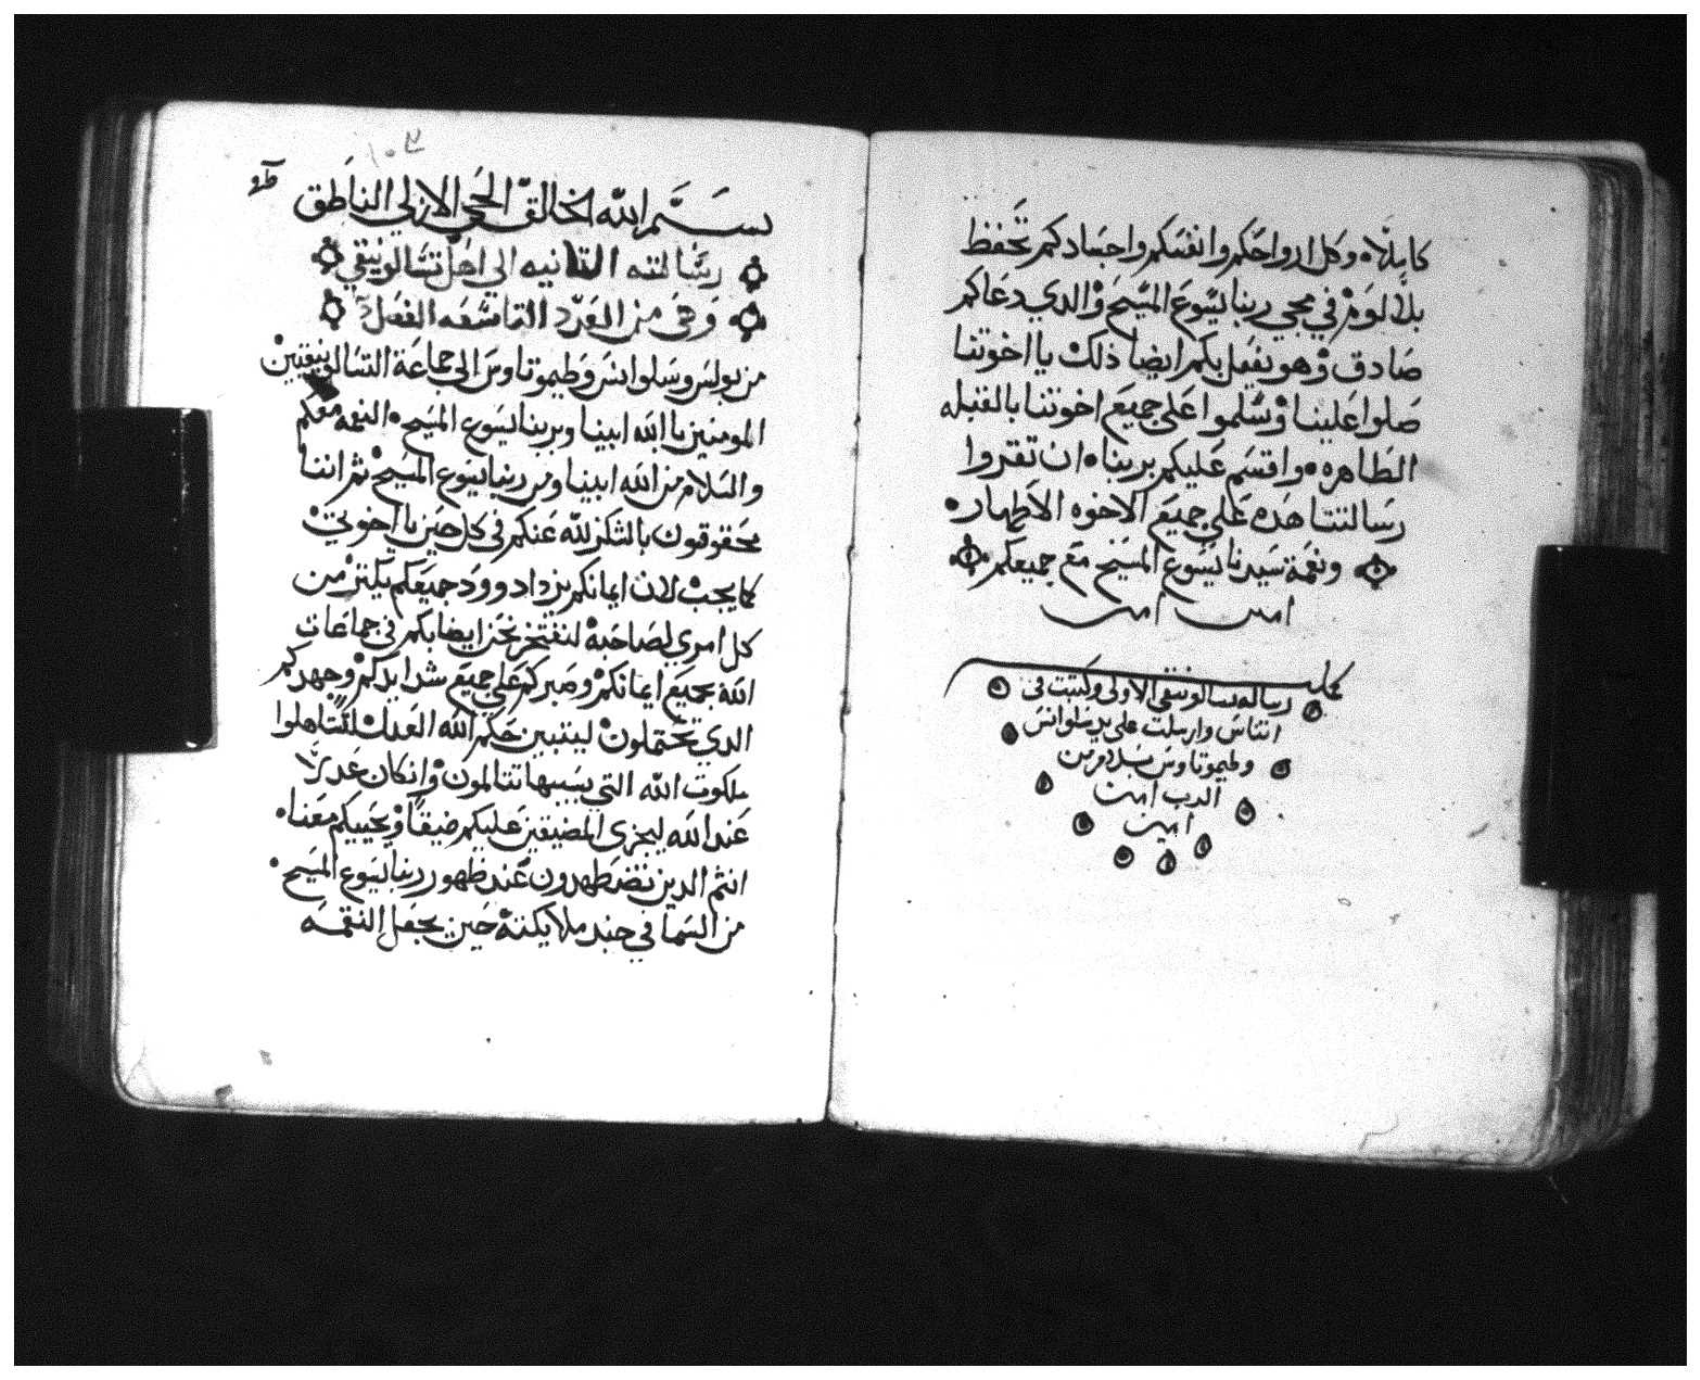 كاملاه وكل ارواحكم وانفسكم واجسادكم تحفظ
بلا لوم في مجي ربنا يسوع المسيح والدي دعاكم
صادق وهو يفعل بكم ايضا ذلك يا اخوتنا
صلوا علينا وسلموا على جميع اخوتنا بالقبله
الطاهره واقسم عليكم بربنا ان تقروا
رسالتنا هده على جميع الاخوه الاطهار
ونعمة سيدنا يسوع المسيح مع جميعكم
امين امين
كملت
رساله تسالونيقي الاولى وكتبت في
اتناس وارسلت على يد سلوانس
وطيموتاوس بسلام من
الرب امين
امين
بسم الله الخالق الحي الازلي الناطق
رسالته التانيه الي اهل تسالونيقي
وهي من العدد التاسعه الفصل
من بولس وسلوانس وطيموتاوس الى جماعة التسالونيقيين
المومنين باالله ابينا وبربنا يسوع المسيح النعمه معكم
والسلام من الله ابينا ومن ربنا يسوع المسيح ثم اننا
محقوقون بالشكر لله عنكم في كل حين يا اخوتي
كما يجب لان ايمانكم يزداد وود جميعكم يكتر من
كل امري لصاحبه لنفتخر نحن ايضا بكم في جماعات
الله بجميع ايمانكم وصبركم على جميع شدايدكم وجهدكم
الدي تحتملون ليتبين حكم الله العدل لتستاهلوا
ملكوت الله التي بسببها تتالمون وانكان عدلا
عند الله ليجزي المضيقين عليكم ضيقا ويحييكم معنا
انتم الدين تضطهدون عند ظهور ربنا يسوع المسيح
من السما في جند ملايكته حين يجعل النقمه